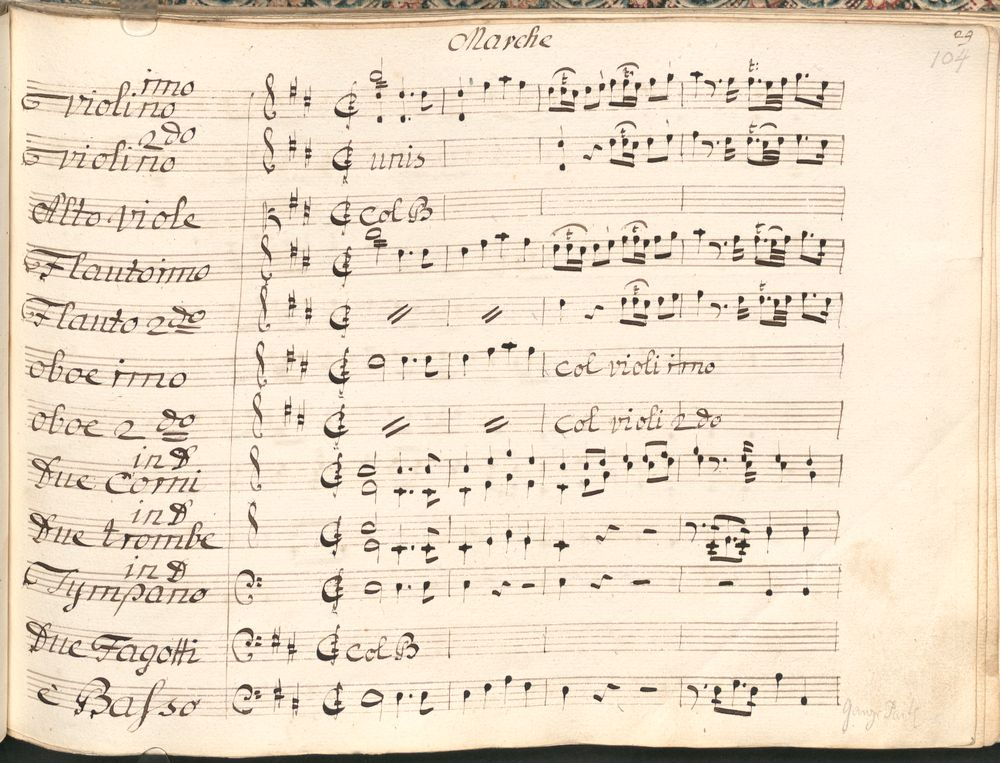 Marche
29
104
violino imo
violino 2do
unis
Alto viole
Col B
Flauto imo
Flauto 2do
oboe imo
Col violi imo
oboe 2 do
Col violi 2 do
Due Corni in D
Due trombe in D
Tympano in D
Due Fagotti
Col B
è Basso